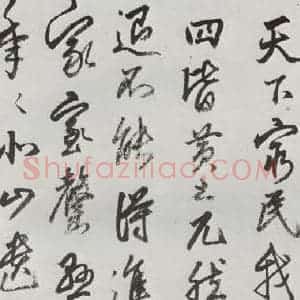 天下窮民我
四皆黄土兀然
退不能得進
家室罄懸
年〻北山
Shufaziliao.com